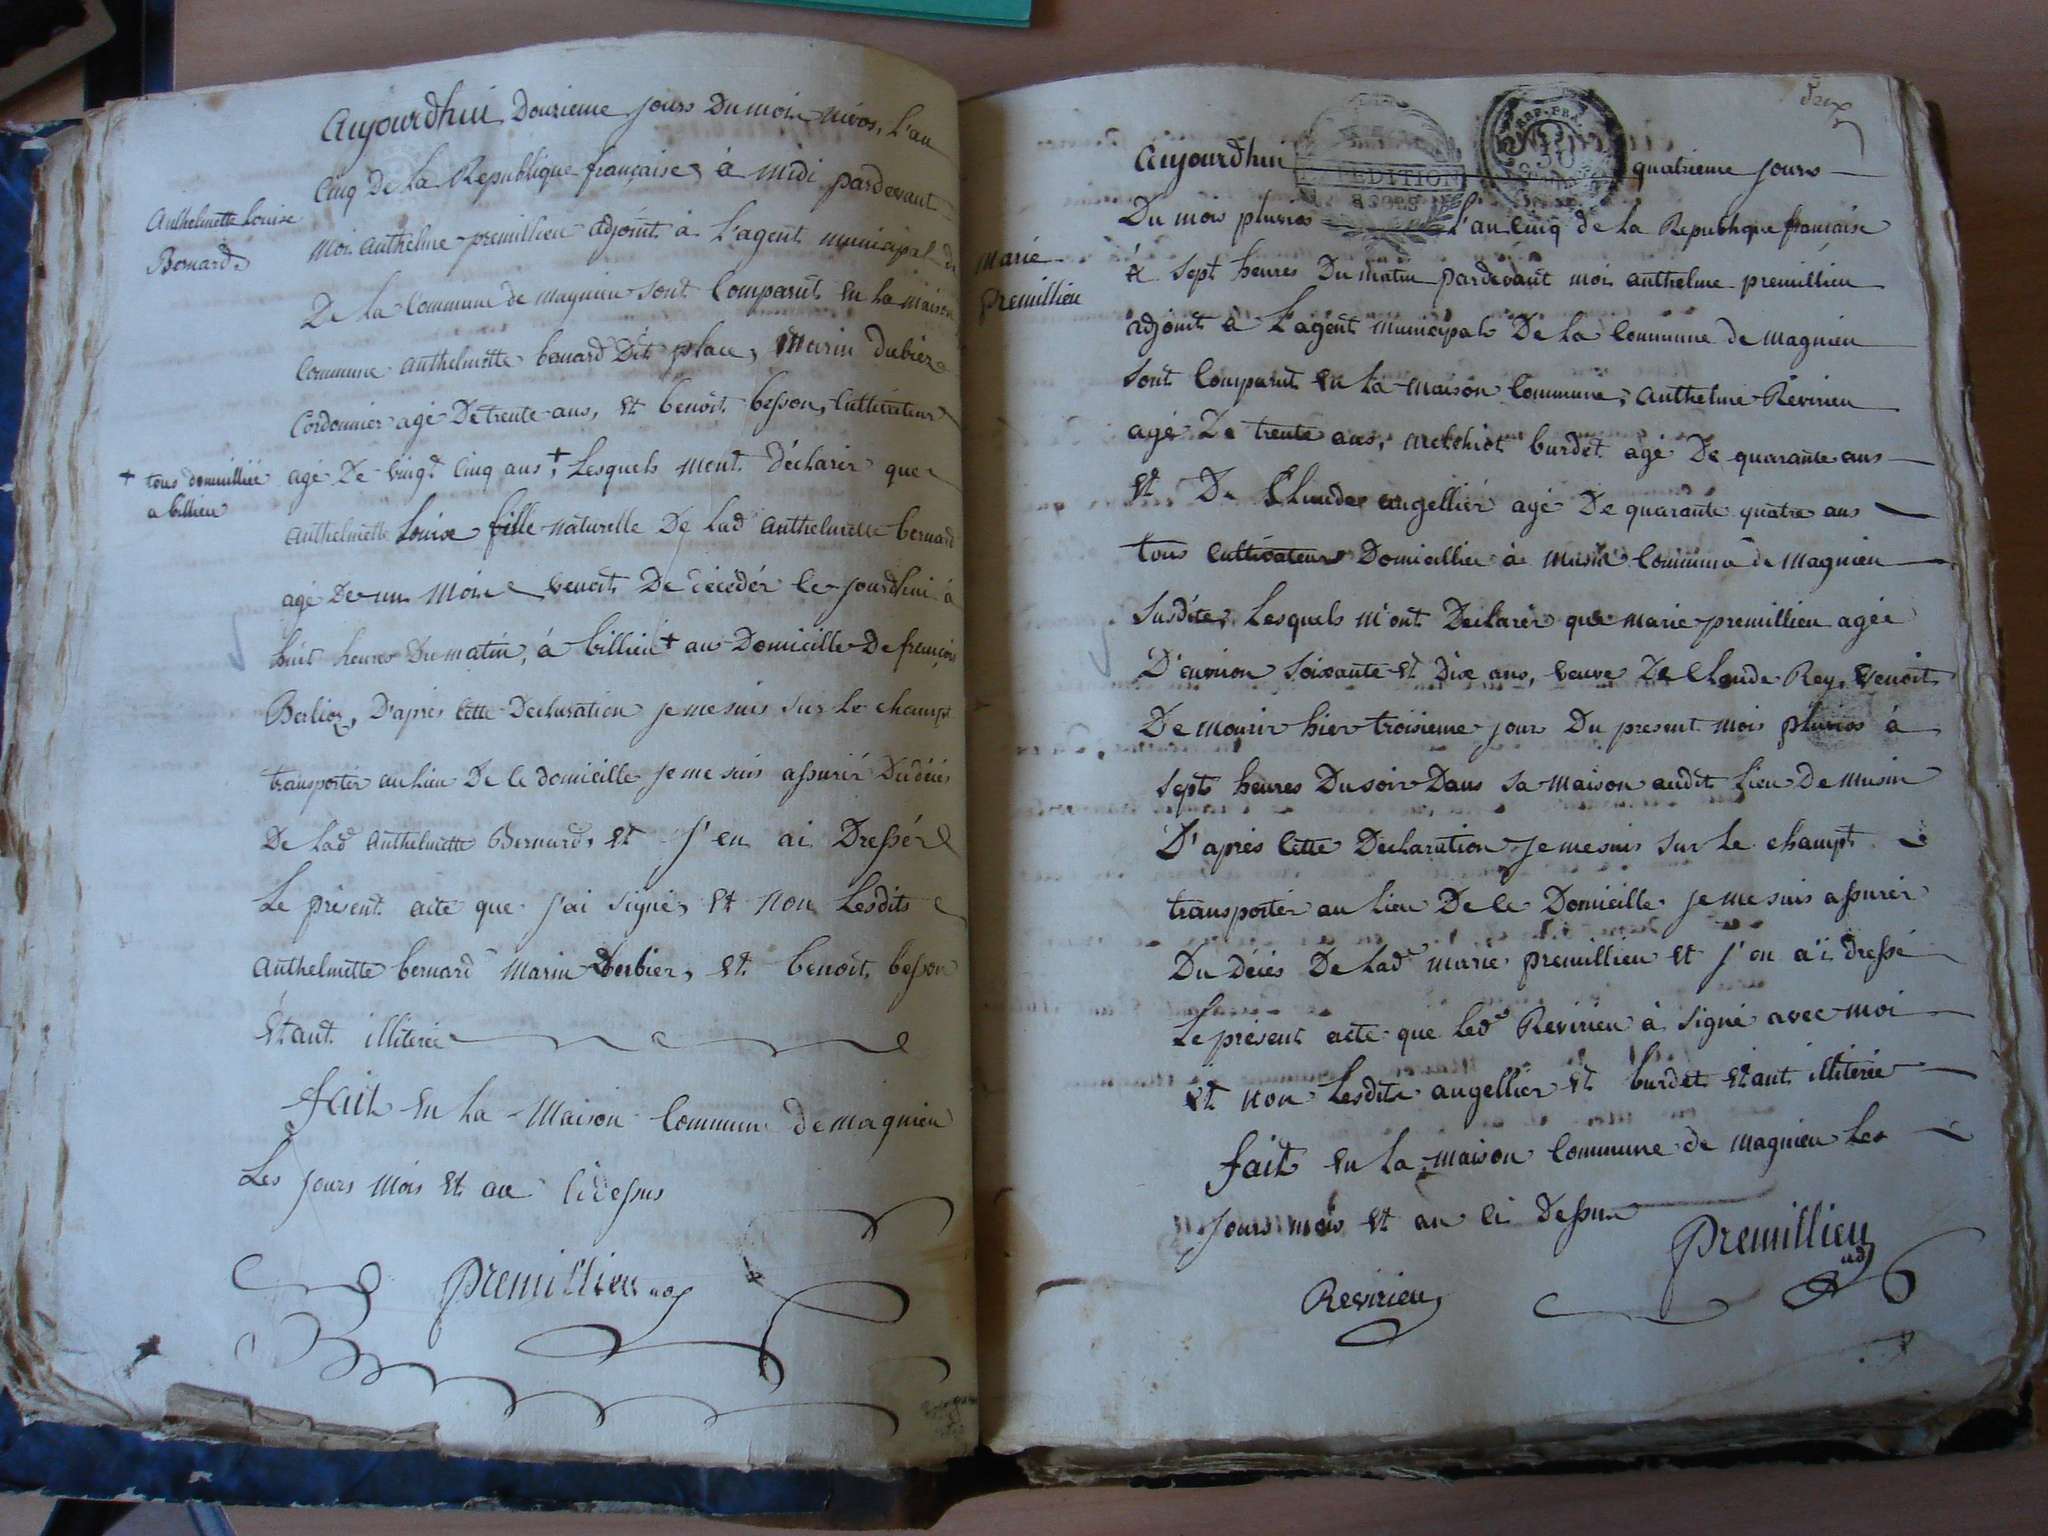 Aujourdhui Douzieme jours Du mois nivos, L'an
Cinq De La Republique française, à midi pardevant
Anthelmette Louise
Bernard
moi anthelme premillieu adjoint à L'agent municipal de
De La Commune de magnieu sont Comparut en La maison
Commune anthelmette benard Dit place, Marin dubiez
Cordonnier agé De trente ans, et benoit besson, Cultivateur
+ tous domicillié
a billieu
agé De vingt Cinq ans +, Lesquels mont Déclarér que
anthelmette Louise fille naturelle De Lad anthelmette bernard
agé De un Mois venoit De décédér Ce jourdhui à
huit heures Du matin, à billieu + au Domicille De françois
Berlioz, D'aprés Cette Declaration je me suis sur Le champt
transportér au Lieu De Ce domicille je me suis assurér Du décés
De Lad Anthelmette Bernard, et J'en ai Dressér
Le présent acte que j'ai signé, et non Lesdits
Anthelmette bernard Marin Derbier, et benoit besson
étant illiteré
fait en La Maison Commune de magnieu
Les Jours Mois et an Cidessus
premillieu adj
Deux
Aujourdhui quatrieme jours
EXPEDITION
50
Du mois pluvios L'an Cinq de La Republique francaise
Marie
premillieu
à sept heures Du matin pardevant moi anthelme premillieu
adjoint à L'agent municipal De La Commune de magnieu
sont Comparut en La maison Commune, anthelme Révirieu
agé De trente ans, Melchiot burdet agé De quarante ans
et De Claude angellier agé De quarante quatre ans
tous Cultivateurs Domicillié à musin Commune de magnieu
susdite, Lesquels m'ont Declarér que marie premillieu agée
D'environ soixante et Dix ans, veuve De Claude Rey, venoit
De mourir hier troisieme jour Du present mois pluvios à
sept heures Du soir Dans sa maison audit Lieu De musin
D'aprés Cette Declaration je me suis sur Le champt
transportér au Lieu De Ce Domicille je me suis assurér
Du décés De Lad marie premillieu et j'en ai dressé
Le présent acte que Led Revirieu à signé avec moi
et non Lesdits angellier et burdet étant illiteré
fait en La maison Commune de magnieu Les
Jours mois et an Ci Dessus
premillieu
adj
Revirieu